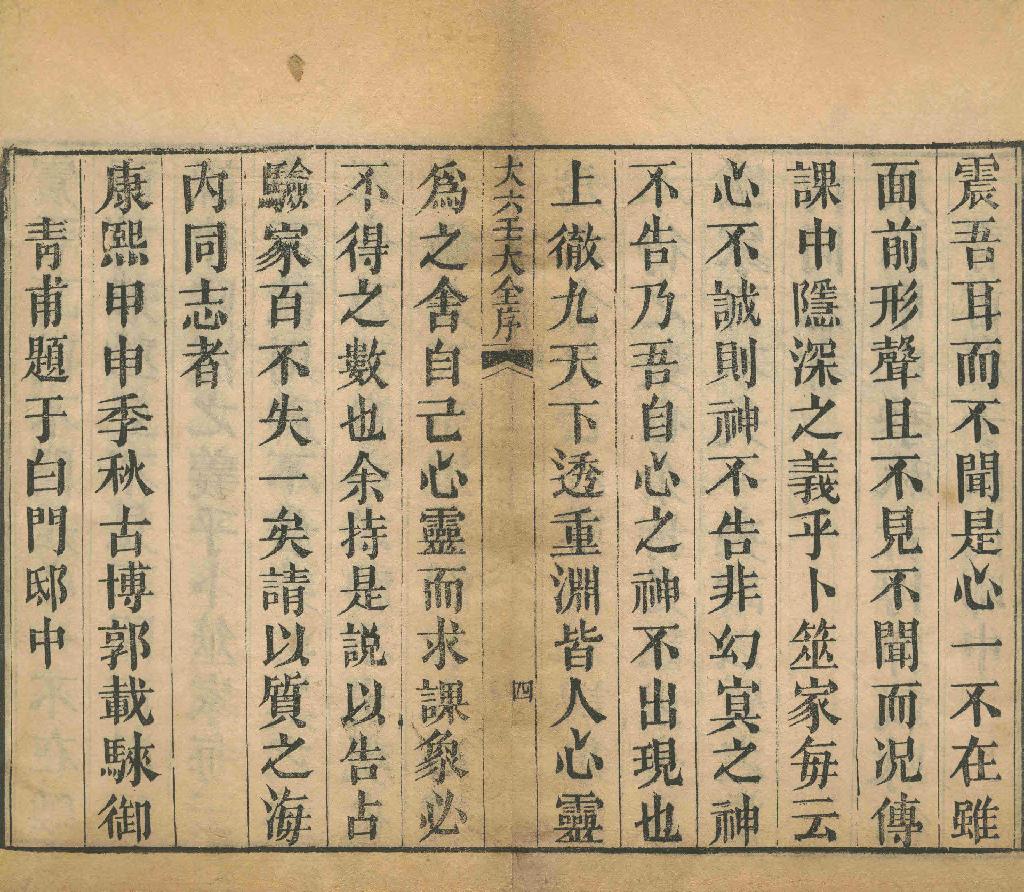 震吾耳而不聞是心一不在雖
面前形聲且不見不聞而况傳
課中隱深之義乎卜筮家每云
心不誠則神不告非幻冥之神
不告乃吾自心之神不出現也
上徹九天下透重淵皆人心靈
大六壬大全序
四
爲之舍自己心靈而求課象必
不得之數也余持是説以告占
驗家百不失一矣請以質之海
内同志者
康熙甲申季秋古博郭載騋御
青甫題于白門邸中